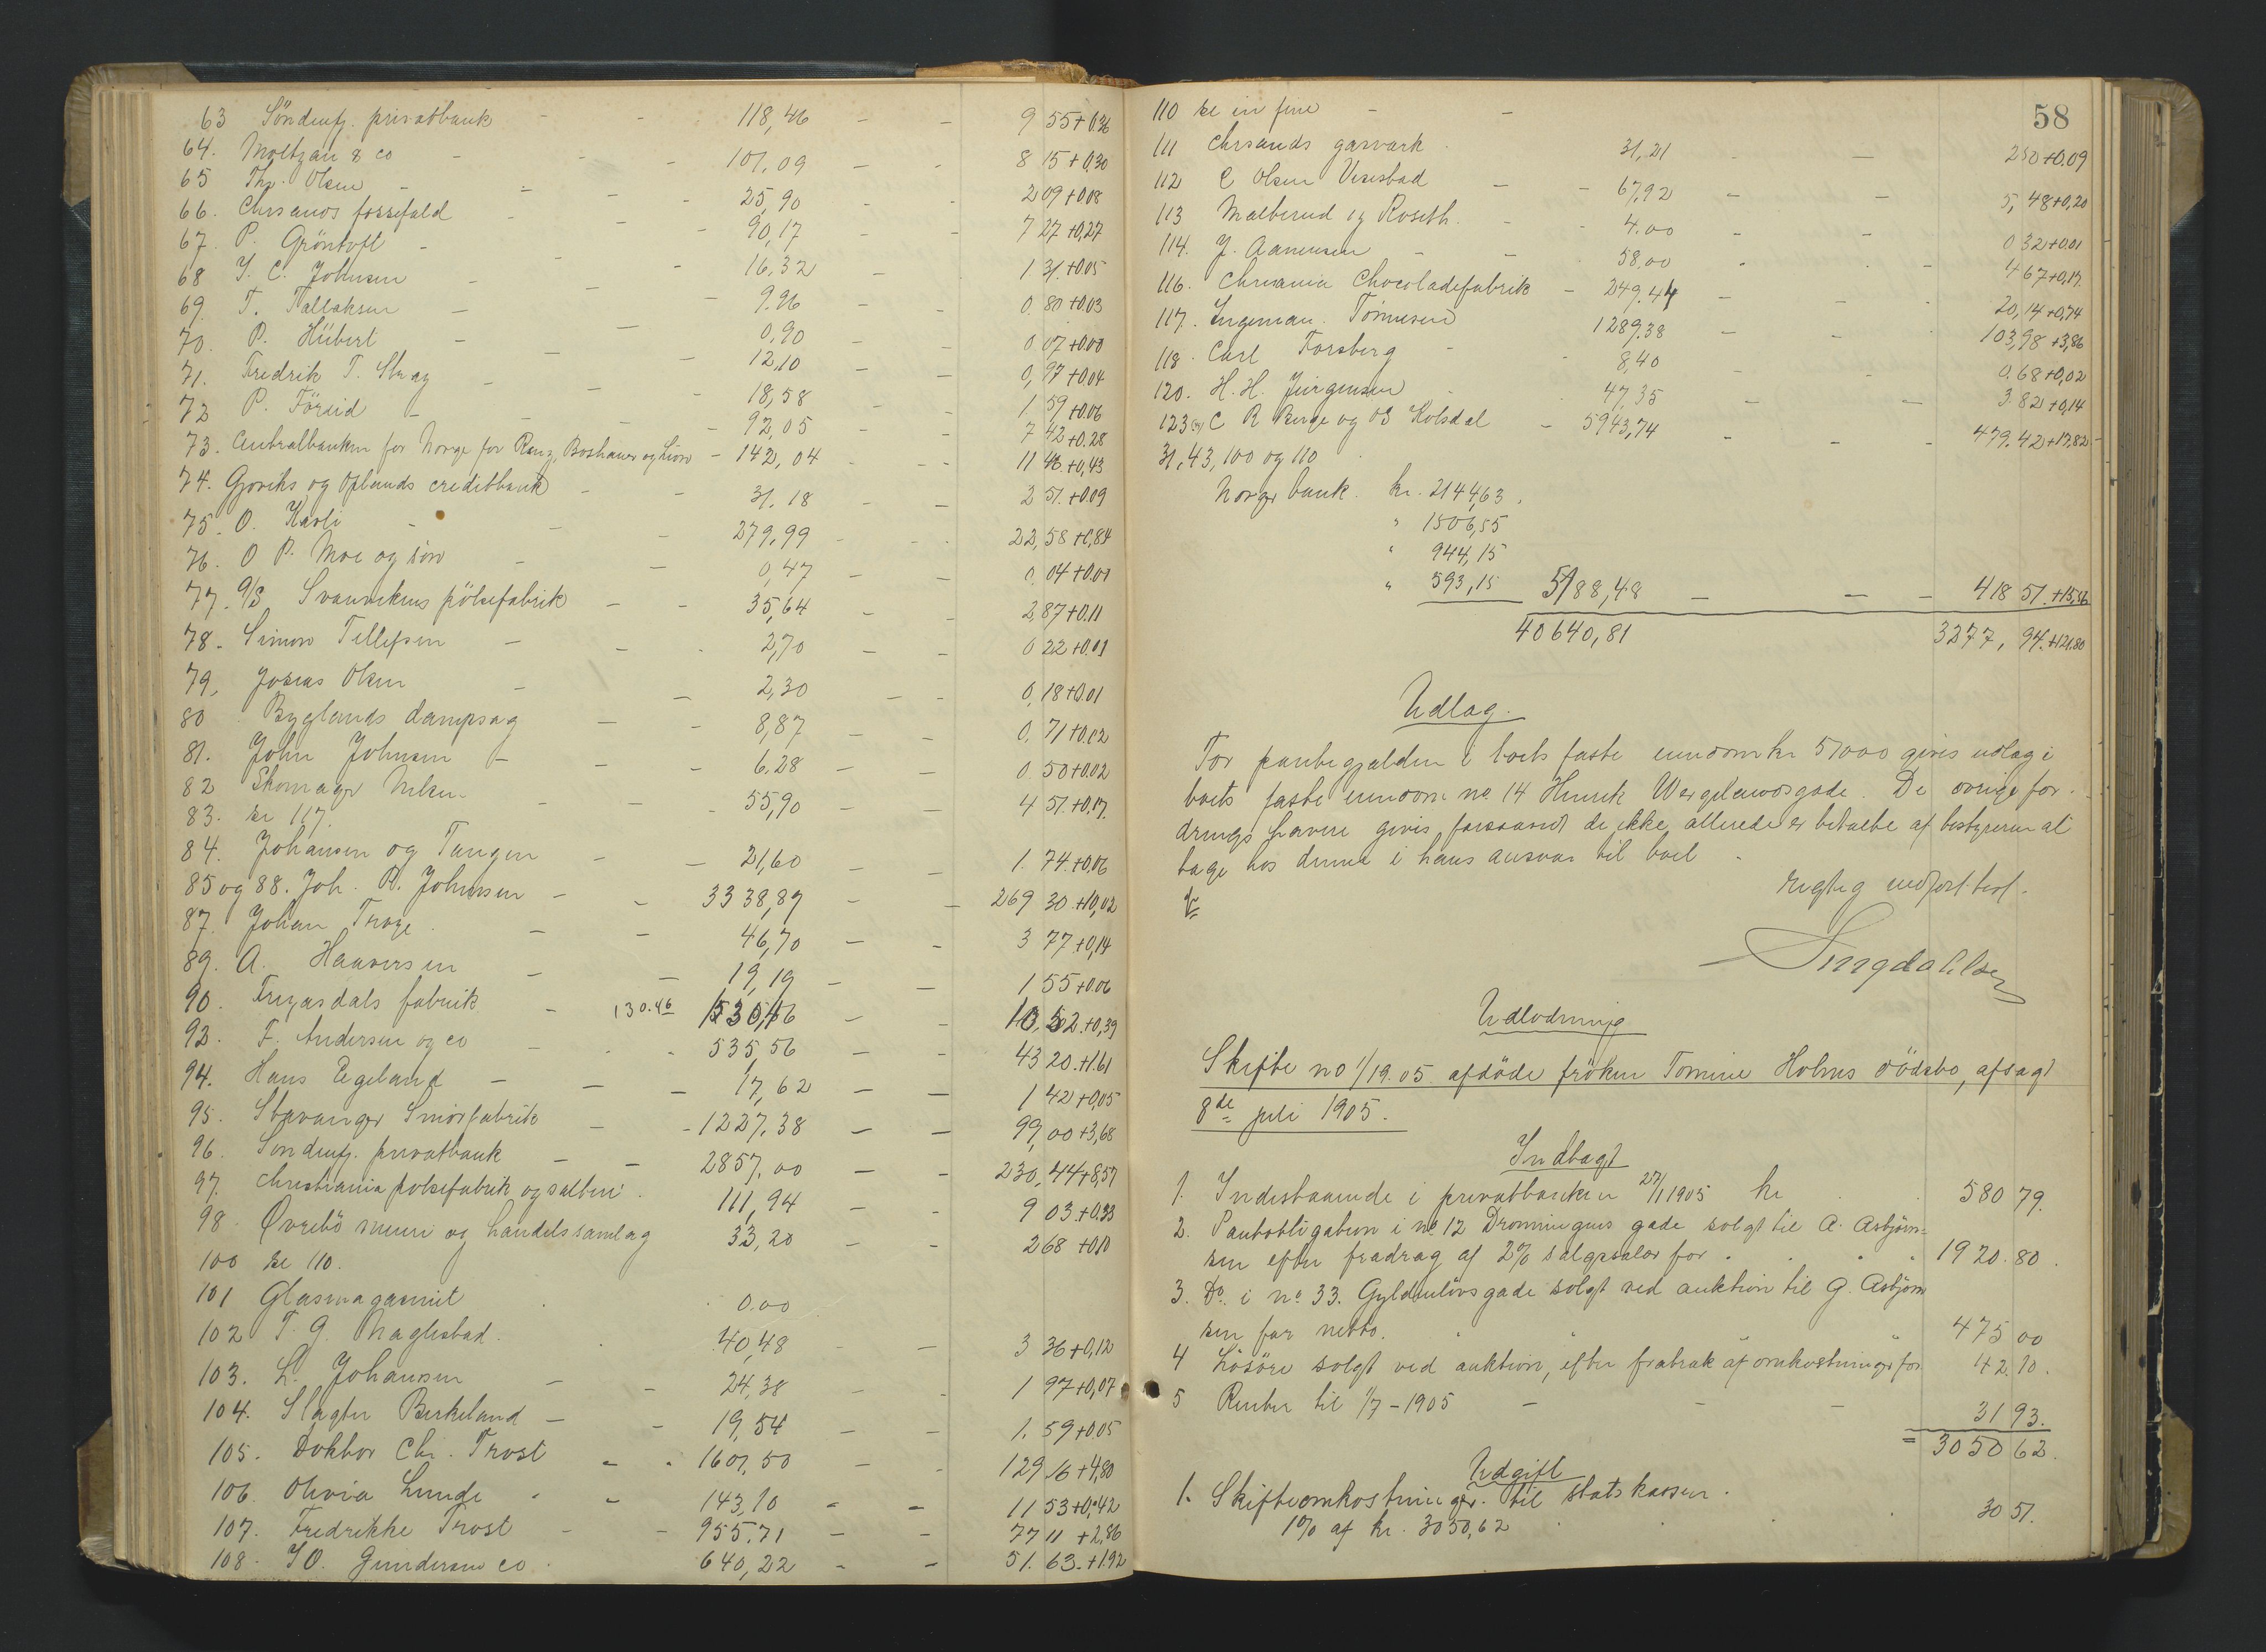 63 Söndenfj. privatbank - - 118,46 - - 9 55 + 0.36
64. Moltzau & co - - - 101,09 - - 8 15 + 0,30
65 Thv. Olsen - - - 25,90 - - 2 09 + 0.08
66. Chrsands fossefald - - - 90,17 - - 7 27 + 0,27
67. P. Gröntoft - - - 16,32 - - 1 31. + 0.05
68 J. C. Johnsen - - - 9.96 - - 0. 80 + 0.03
69. T. Tallaksen - - 0,90 - - 0 07 + 0.00
70. P. Hübert - - - 12,10 - - 0, 97 + 0.04
71. Fredrik T. Stray - - 18,58 - - 1 59 + 0.06
72 P. Försid - - - 92,05 - - 7 42 + 0.28
73. Centralbanken for Norge for Renz, Boshauer og Lion - 142,04 - - 11 46. + 0,43
74. Gjoviks og Oplands creditbank - - 31.18 - - 2 51. + 0.09
75. O. Kavli - - - 279.99 - - 22,58 + 0,84
76. O P. Moe og sön - - 0,47 - - 0. 04 + 0.00
77. A/S Svanvikens pölsefabrik - - 35,64 - - 2,87 + 0.11
78. Simon Tellefsen - - - 2,70 - - 0 22 + 0.01
79, Josias Olsen - - 2,30 - - 0, 18 + 0.01
80 Byglands dampsag - - 8,87 - - 0. 71 + 0.02
81. John Johnsen - - - 6.28 - - 0. 50 + 0.02
82 Skomager Nilsen - - - 55,90 - - 4 51. + 0.17.
83. se 117.
84. Johansen og Tangen - - 21,60 - - 1. 74. + 0,06
85 og 88. Joh. R. Johnsen - - 3338,89 - - 269 30 + 10,02
87. Johan Thoge. - - 46,70 - - 3 77 + 0,14
89. A. Haaversen - - 19,19 - - 1 55 + 0.06
90. Frigasdals fabrik - 130.46 130,46 - - 10,52. + 0,39
93. F. Andersen og co - - - 535,56 - - 43 20. + 1.61
94. Hans Egeland - - - 17,62 - - 1 42 + 0,05
95. Stavanger Smörfabrik - - 1227.38 - - 99,00 + 3,68
96. Söndenfj. privatbank - - 2857.00 - - 230,44 + 8,57
97. Christiania pölsefabrik og salteri. 111,94 - - 9 03. + 0.33
98. Øvrebö smeri og handelssamlag 33,20 - - 2 68 + 0.10
100 se 110.
101 Glasmagasinet . . 0.00
102 T. G. Naglestad. . 40,48 - - 3 36 + 0,12
103. L. Johansen - - 24,38 - - 1 97 + 0,07
104. Slagter Birkeland - - 19,54 - - 1. 59 + 0.05
105. Doktor Chr. Trost - - 1601,50 - - 129 16 + 4,80
106. Olivia Lunde - - 143,10 - - 11 53 + 0,42
107. Fredrikke Trost - - 955.71 - - 77 11 + 2,86
108. J O. Gundersen co . 640,22 - - 51. 63. + 1.92
58
110 se in fine - -
111 Chrsands gasverk . 31,21 . - 2 50 + 0.09
112 C Olsen Vesestad - - 67,92 - - 5, 48 + 0,20
113 Malterud og Roseth. - - 4.00 - - 0 32 + 0.01
114. J. Aanensen - - 58.00 . . - 4 67 + 0,17.
116. Chrisania Chocoladefabrik - 249.44 - - . 20,14 + 0,74
117. Ingeman. Tönnesen 1289.38 - - 103,98 + 3,86
118. Carl Forsberg - . 8,40 - - 0.68 + 0,02
120. H. H. Jürgensen . . 47,35 - - 3. 82 + 0,14
123 C R Berge og OS Kolsdal - 5943,74 - - - 479.42 + 17,82
31, 43, 100 og 110 .
Norges bank. kr. 2144,63.
" 1506,55
" 944,15
" 593,15 5188,48 - - - 418 51. + 15,56
40640,81 3277, 94. + 121.80
Udlag.
For pantegjælden i boets faste eiendom kr 51000 gives udlag i
boets faste eiendom no 14 Henrik Wergelandsgade. De övrige for-
dringshavere gives forsaavidt de ikke allerede er betalte af bestyreren at
tage hos denne i hans ansvar til boet.
rigtig udfört test.
Udlodning
Skifte no 1/19.05 afdöde fröken Tomine Holms dödsbo, afsagt
8de juli 1905.
Indtagt
1. Indestaaende i privatbanken 27/1 1905 kr . 580 79.
2. Pantobligation i no 12 Dronningens gade solgt til A. Asbjörn-
sen efter fradrag af 2% salgssalær for . . . . 1920.80.
3. Do. i no. 33. Gyldenlövsgade solgt ved auktion til G. Asbjörn
sen for netto. " " " 475 00
4 Lösöre solgt ved auktion, efter fratrak af omkostninger for 42.10.
5 Renter til 1/7 - 1905 - - - 31 93.
= 3050 62.
Udgift
1. Skifteomkostninger. til statskassen.
1% af kr. 3050,62 . . . 30 51.